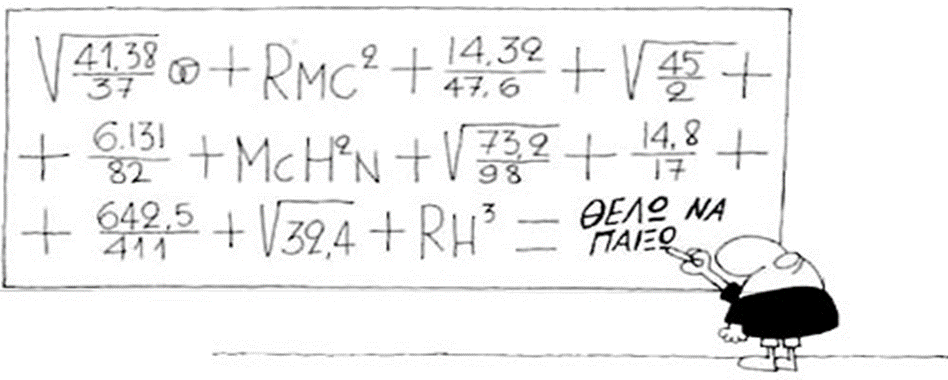 √41,38/37 ⓥ + RMC² + 14,32/47,6 + √45/2 +
+ 6.131/82 + MCH²N + √73,2/98 + 14,8/17 +
+ 642,5/411 + √32,4 + RH³ = ΘΕΛΩ ΝΑ
ΠΑΙΞΩ